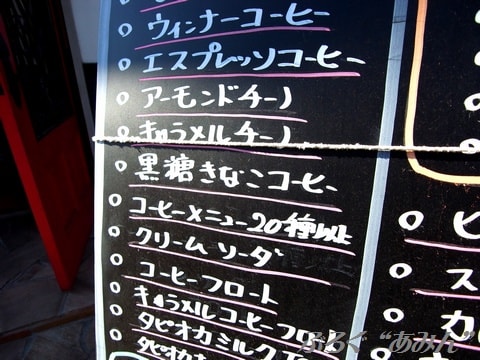 ウィンナーコーヒー
エスプレッソコーヒー
アーモンドチーノ
きゅらメルチーノ
黒糖きなこコーヒー
コーヒーメニュー20種以上
クリームソーダ
コーヒーフロート
きゅらメルコーヒーフロート
タピオカミルク
タピオカ
ピ
ス
カ
ぶろぐ “あみん”